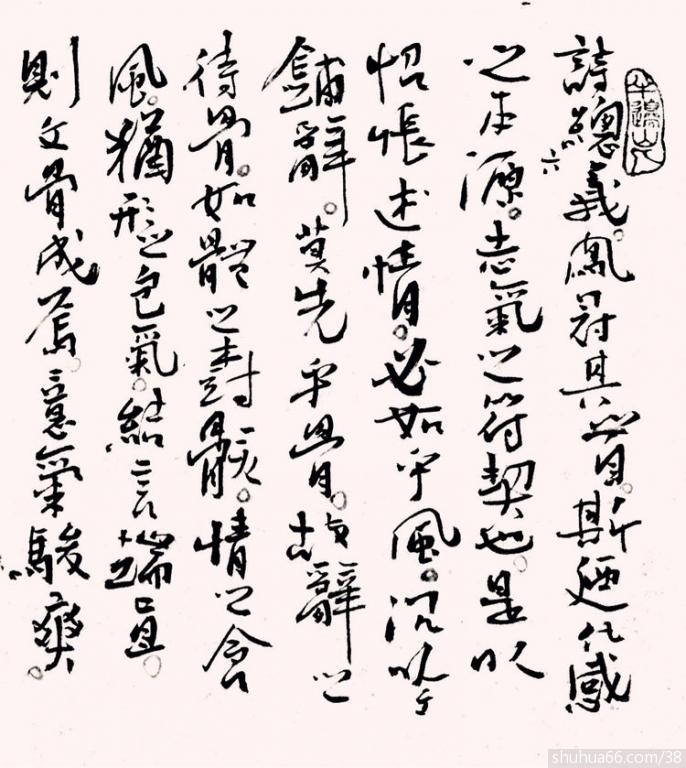 詩總六義。風冠其首。斯迺化感
之本源。志氣之符契也。是以
怊悵述情。必始乎風。沉吟
鋪辭。莫先乎骨。故辭之
待骨。如體之樹骸。情之含
風。猶形之包氣。結言端直。
則文骨成焉。意氣駿爽。
shuhua66.com/38